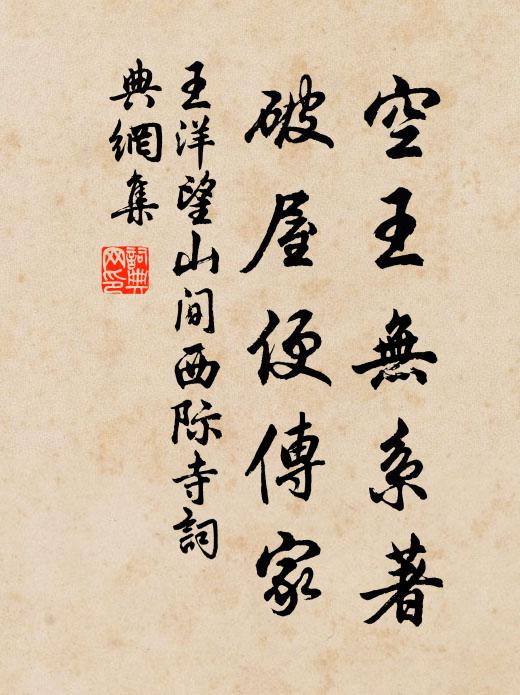 空王無系著
破屋便傳家
王洋望山间西际寺詞
典網集
詞典
网印